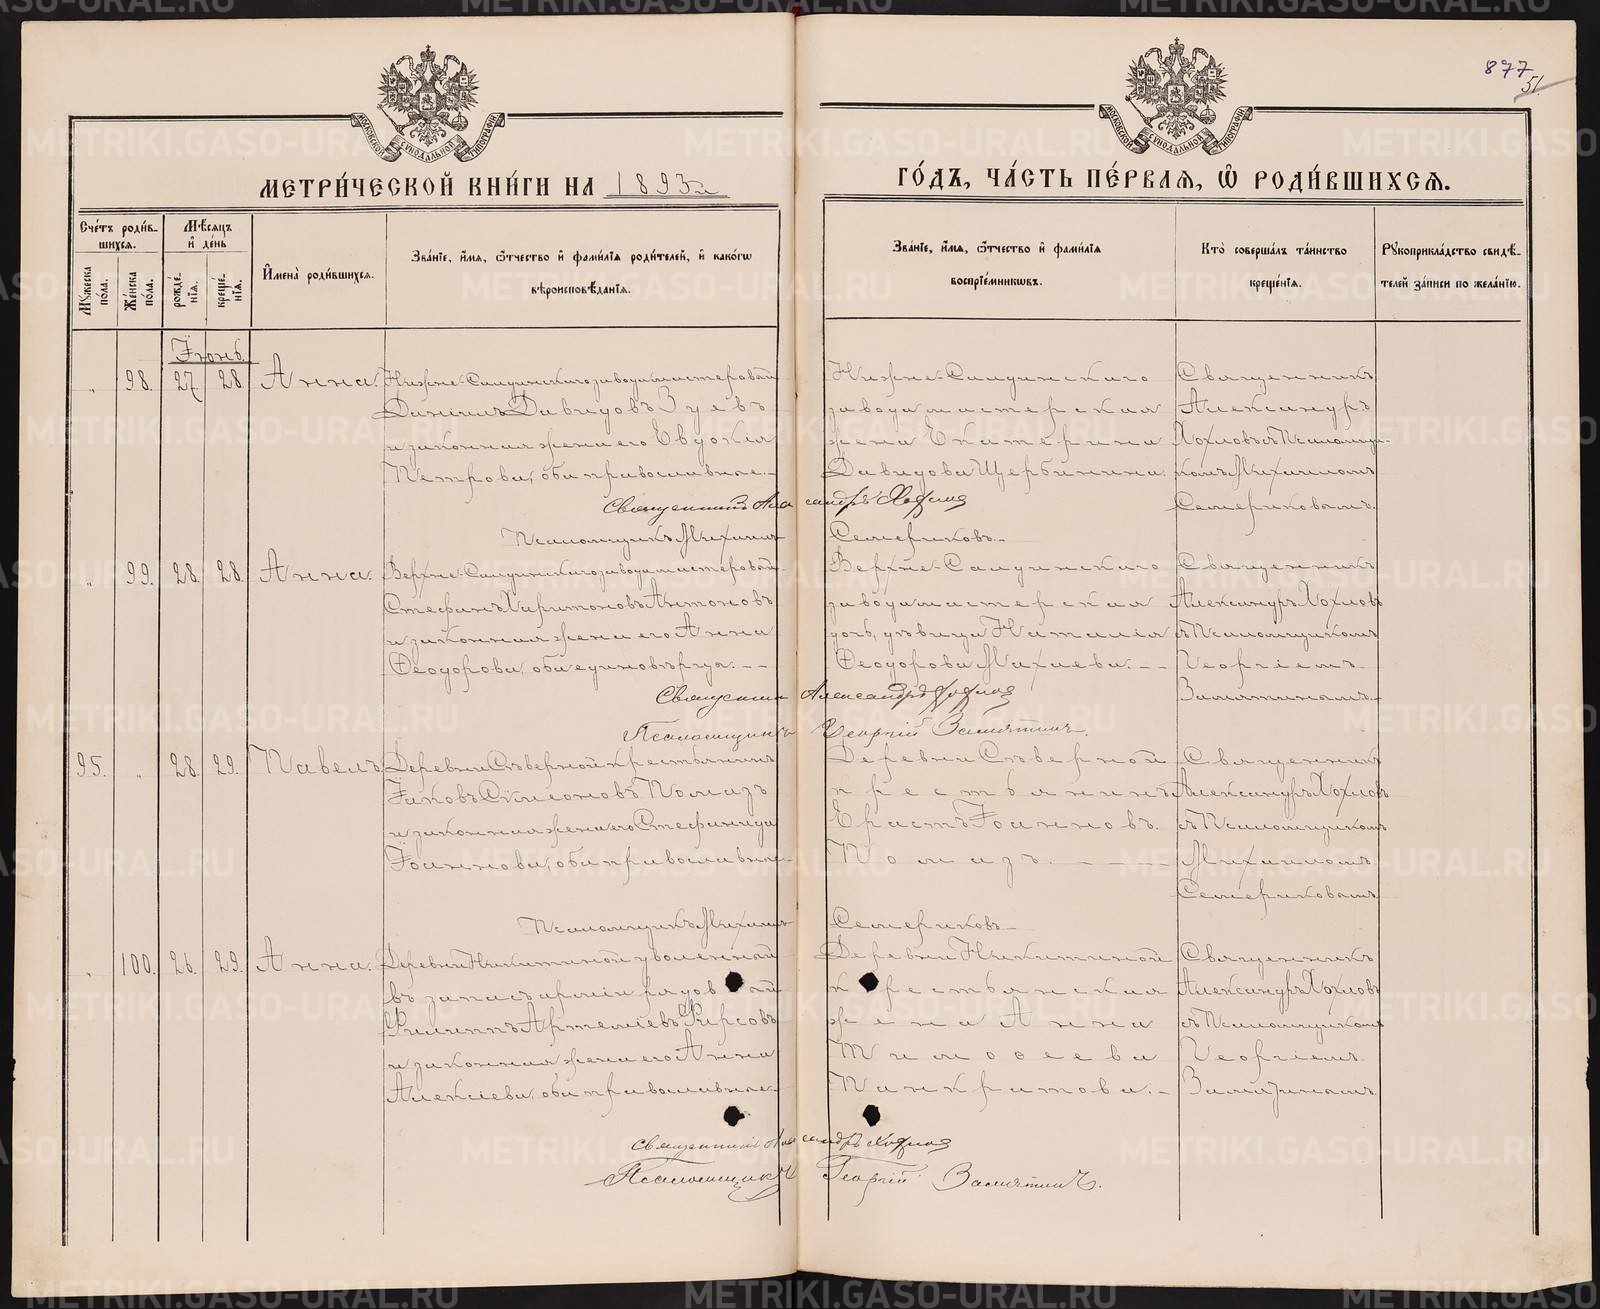 877
51
МЕТРИ́ЧЕСКОЙ КНИ́ГИ НА 1893й
ГО́ДЪ, ЧА́СТЬ ПЕ́РВАЯ, Ѽ РОДИ́ВШИХСЯ.
МОСКОВСКОЙ СУНОДАЛЬНОЙ ТИПОГРАФІИ
МОСКОВСКОЙ СУНОДАЛЬНОЙ ТИПОГРАФІИ
Сче́тъ роди́в-
шихся.
Му́жеска пола.
Же́нска по́ла.
Мѣ́сяцъ
и де́нь
рожде́-
нія.
креще́-
нія.
Имена̀ роди́вшихся.
Зва́ніе, и́мя, ѻ́тчество и фами́лія роди́телей, и како́гѡ
вѣроисповѣ́данія.
Зва́ніе, и́мя, ѻ́тчество и фами́лія
воспріе́мникѡвъ.
Кто̀ соверша́лъ та́инство
креще́нія.
Рукоприкла́дство свидѣ́-
телей за́писи по жела́нію.
Іюнь.
„ 98. 27 28 Анна. Нижне-Салдинскаго завода мастеровой
Даніилъ Давидовъ Зуевъ
и законная жена его Евдокія
Петрова, оба православные.—
Нижне-Салдинскаго
завода мастерская
жена Екатерина
Давидова Щербинина.
Священникъ
Александръ
Хохловъ съ Псаломщи-
комъ Михаиломъ
Семериковымъ.
Священникъ Александръ Хохлов
Псаломщикъ Михаилъ Семериковъ.
„ 99. 28. 28. Анна. Верхне-Салдинскаго завода мастеровой
Стефанъ Харитоновъ Антоновъ
и законная жена его Анна
Феодорова, оба единовѣрцы.——
Верхне-Салдинскаго
завода мастерская
дочь, дѣвица Наталія
Феодорова Махнева.——
Священникъ
Александръ Хохловъ
съ Псаломщикомъ
Георгіемъ
Замятинымъ.
Священник Александръ Хохлов
Псаломщикъ Георгій Замятинъ.
95. „ 28. 29. Павелъ Деревни Сѣверной крестьянинъ
Іаковъ Симеоновъ Помазъ
и законная жена его Стефанида
Іоаннова, оба православные.—
Деревни Сѣверной
крестьянинъ
Ерастъ Іоанновъ
Помазъ.
Священникъ
Александръ Хохловъ
съ Псаломщикомъ
Михаиломъ
Семериковымъ
Псаломщикъ Михаилъ Семериковъ
„ 100. 26. 29. Анна. Деревни Никитиной уволенный
въ запасъ арміи рядовый
Филиппъ Артеміевъ Фирсовъ
и законная жена его Анна
Алексіева, оба православные.—
Деревни Никитиной
крестьянская
жена Анна
Тимоѳеева
Панкратова.—
Священникъ
Александръ Хохловъ
съ Псаломщикомъ
Георгіемъ
Замятинымъ.
Священникъ Александръ Хохлов
Псаломщикъ Георгій Замятинъ.
METRIKI.GASO-URAL.RU